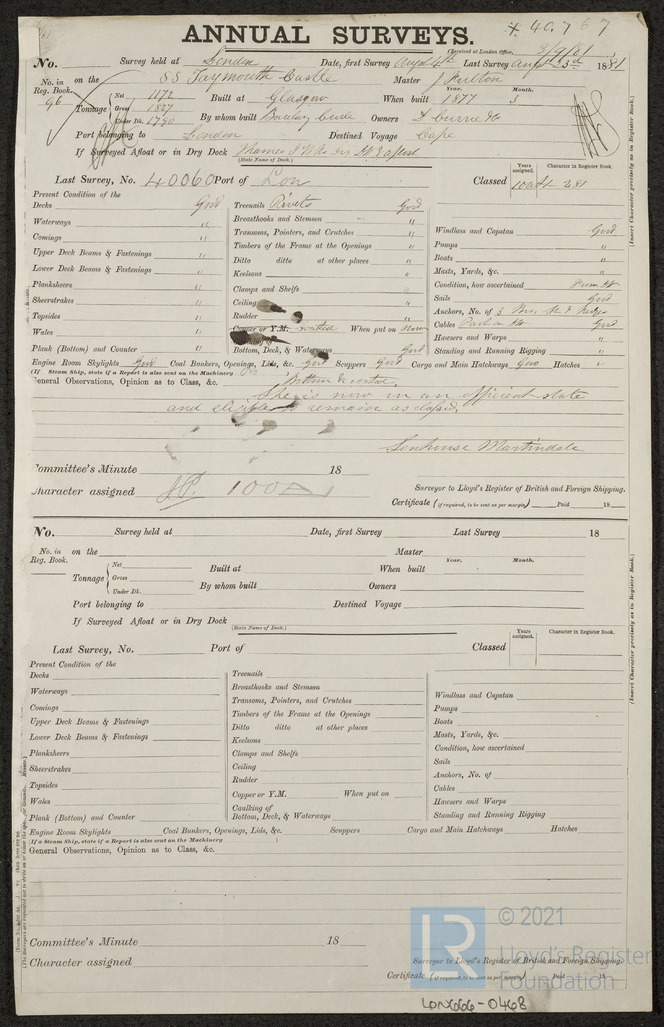 ANNUAL SURVEYS. 40767
(Received at London Office, 3/9/81
No. Survey held at London Date, first Survey Augt 4th Last Survey Augt 23rd 1881
No. in Reg. Book. 96 on the SS Taymouth Castle Master J Fulton
Tonnage Net 1172 Built at Glasgow When built Year. 1877 Month. 5
Gross 1827
Under Dk. 1790 By whom built Barclay Curle Owners D Currie & Co
Port belonging to London Destined Voyage Cape
If Surveyed Afloat or in Dry Dock Thames
(State Name of Dock.)
Last Survey, No. 40060 Port of Lon Classed Years assigned. 100A1 Character in Register Book. 2 81
(Insert Character precisely as in Register Book.)
Present Condition of the
Decks Good
Waterways "
Comings "
Upper Deck Beams & Fastenings "
Lower Deck Beams & Fastenings "
Planksheers "
Sheerstrakes "
Topsides "
Wales "
Plank (Bottom) and Counter "
Treenails Rivets Good
Breasthooks and Stemson "
Transoms, Pointers, and Crutches "
Timbers of the Frame at the Openings "
Ditto ditto at other places "
Keelsons "
Clamps and Shelfs "
Ceiling "
Rudder "
Copper or Y.M. coated When put on Now
Bottom, Deck, & Waterways Good
Windlass and Capstan Good
Pumps "
Boats "
Masts, Yards, &c. "
Condition, how ascertained From
Sails Good
Anchors, No. of 3
Cables Good
Hawsers and Warps "
Standing and Running Rigging "
Engine Room Skylights Good Coal Bunkers, Openings, Lids, &c. Good Scuppers Good Cargo and Main Hatchways Good Hatches "
(If a Steam Ship, state if a Report is also sent on the Machinery )
General Observations, Opinion as to Class, &c. Bottom coated.
She is now in an efficient state
and eligible to remain as classed.
Lenthouse Martindale
Committee's Minute 18
Character assigned 100A1
Surveyor to Lloyd's Register of British and Foreign Shipping.
Certificate (if required, to be sent as per margin) Paid 18
No. Survey held at Date, first Survey Last Survey 18
No. in Reg. Book. on the Master
Tonnage Net Built at When built Year. Month.
Gross
Under Dk. By whom built Owners
Port belonging to Destined Voyage
If Surveyed Afloat or in Dry Dock
(State Name of Dock.)
Last Survey, No. Port of Classed Years assigned. Character in Register Book.
(Insert Character precisely as in Register Book.)
Present Condition of the
Decks
Waterways
Comings
Upper Deck Beams & Fastenings
Lower Deck Beams & Fastenings
Planksheers
Sheerstrakes
Topsides
Wales
Plank (Bottom) and Counter
Treenails
Breasthooks and Stemson
Transoms, Pointers, and Crutches
Timbers of the Frame at the Openings
Ditto ditto at other places
Keelsons
Clamps and Shelfs
Ceiling
Rudder
Copper or Y.M. When put on
Caulking of
Bottom, Deck, & Waterways
Windlass and Capstan
Pumps
Boats
Masts, Yards, &c.
Condition, how ascertained
Sails
Anchors, No. of
Cables
Hawsers and Warps
Standing and Running Rigging
Engine Room Skylights Coal Bunkers, Openings, Lids, &c. Scuppers Cargo and Main Hatchways Hatches
(If a Steam Ship, state if a Report is also sent on the Machinery
General Observations, Opinion as to Class, &c.
Committee's Minute 18
Character assigned
Surveyor to Lloyd's Register of British and Foreign Shipping.
Certificate (if required, to be sent as per margin) Paid 18
LR © 2021
Lloyd's Register
Foundation
LON666-0468